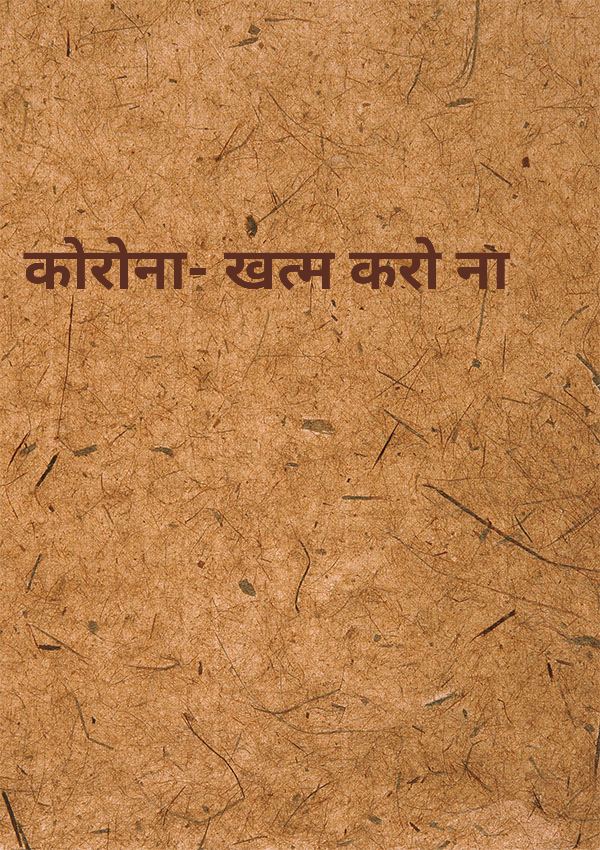 कोरोना- खत्म करो ना